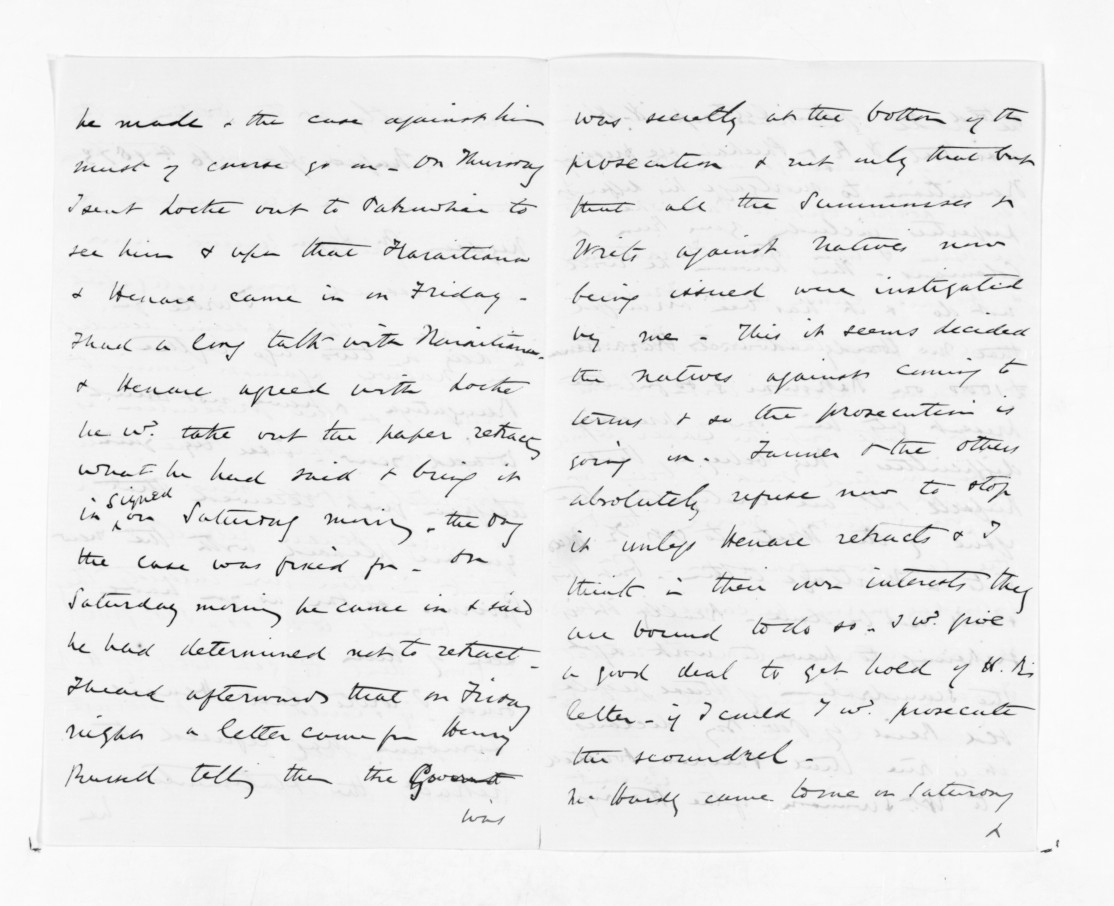 he made & the case against him
must of course go on - On Thursday
I sent Locke out to Pakowhai to
see him & upon that Karaitiana
& Henare came in on Friday -
I had a long talk with Karaitiana
& Henare agreed with Locke
he wd. take out the paper retractg
what he had said & bring it
in signed on Saturday morng, the day
the case was fixed for - On
Saturday morning he came in & said
he had determined not to retract -
I heard afterwards that on Friday
night a letter came fm Henry
Russell telling them the Governmt
was
was secretly at the bottom of the
prosecution & not only that but
that all the Summonses &
Writs against Natives now
being issued were instigated
by me - This it seems decided
the Natives against coming to
terms & so the prosecution is
going on - Tanner & the others
absolutely refuse now to stop
it unless Henare retracts & I
think in their own interests they
are bound to do so - I wd. give
a good deal to get hold of H. R's
letter - if I could I wd. prosecute
the scoundrel -
came to me on Saturday
&